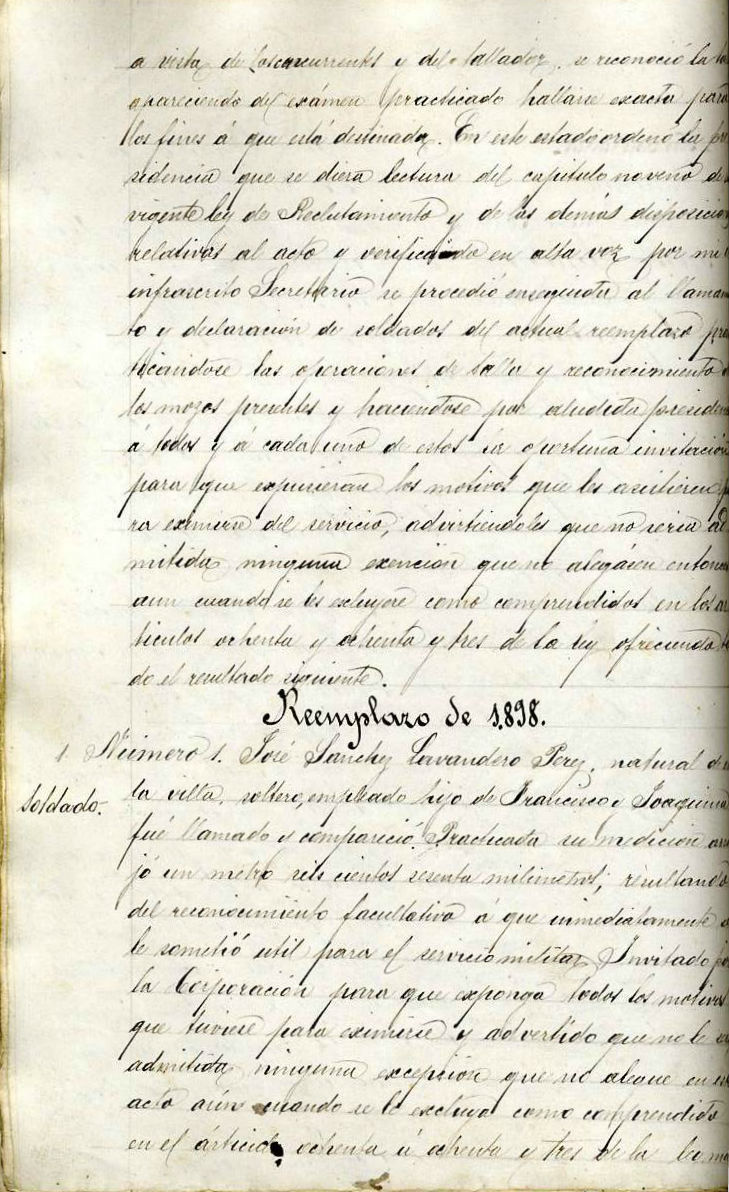 a vista de los concurrentes y del tallador, se reconoció la ta
apareciendo del exámen practicado hallarse exacta para
los fines á que está destinada. En este estado ordenó la pre
sidencia que se diera lectura del capítulo noveno de
vigente ley de Reclutamiento y de las demás disposicion
relativas al acto y verificandolo en alta voz por mi
infrascrito Secretario se procedió enseguida al llamam
to y declaración de soldados del actual reemplazo prac
ticandose las operaciones de talla y reconocimiento
los mozos presentes y haciendose por aludida presiden
á todos y á cada uno de estos la oportuna invitación
para que expusieran los motivos que les asistieren pa
ra eximirse del servicio, advirtiendoles que no seria ad
mitida ninguna exención que no alegásen entonce
aun cuando se les excluyere como comprendidos en los ar
ticulos ochenta y ochenta y tres de la ley ofreciendo
do el resultado siguiente.
Reemplazo de 1.898.
1. Número 1. José Sanchez Lavandero Perez, natural de
la villa, soltero, empleado hijo de Francisco y Joaquina
Soldado.
fué llamado y compareció. Practicada su medición arro
jó un metro seis cientos sesenta milimetros, resultando
del reconocimiento facultativo á que inmediatamente
le sometió util para el servicio militar. Invitado por
la Corporación para que exponga todos los motivos
que tuviese para eximirse y advertido que no le
admitida ninguna excepción que no alegue en est
acto aún cuando se le excluya como comprendido
en el árticulo ochenta ú ochenta y tres de la ley